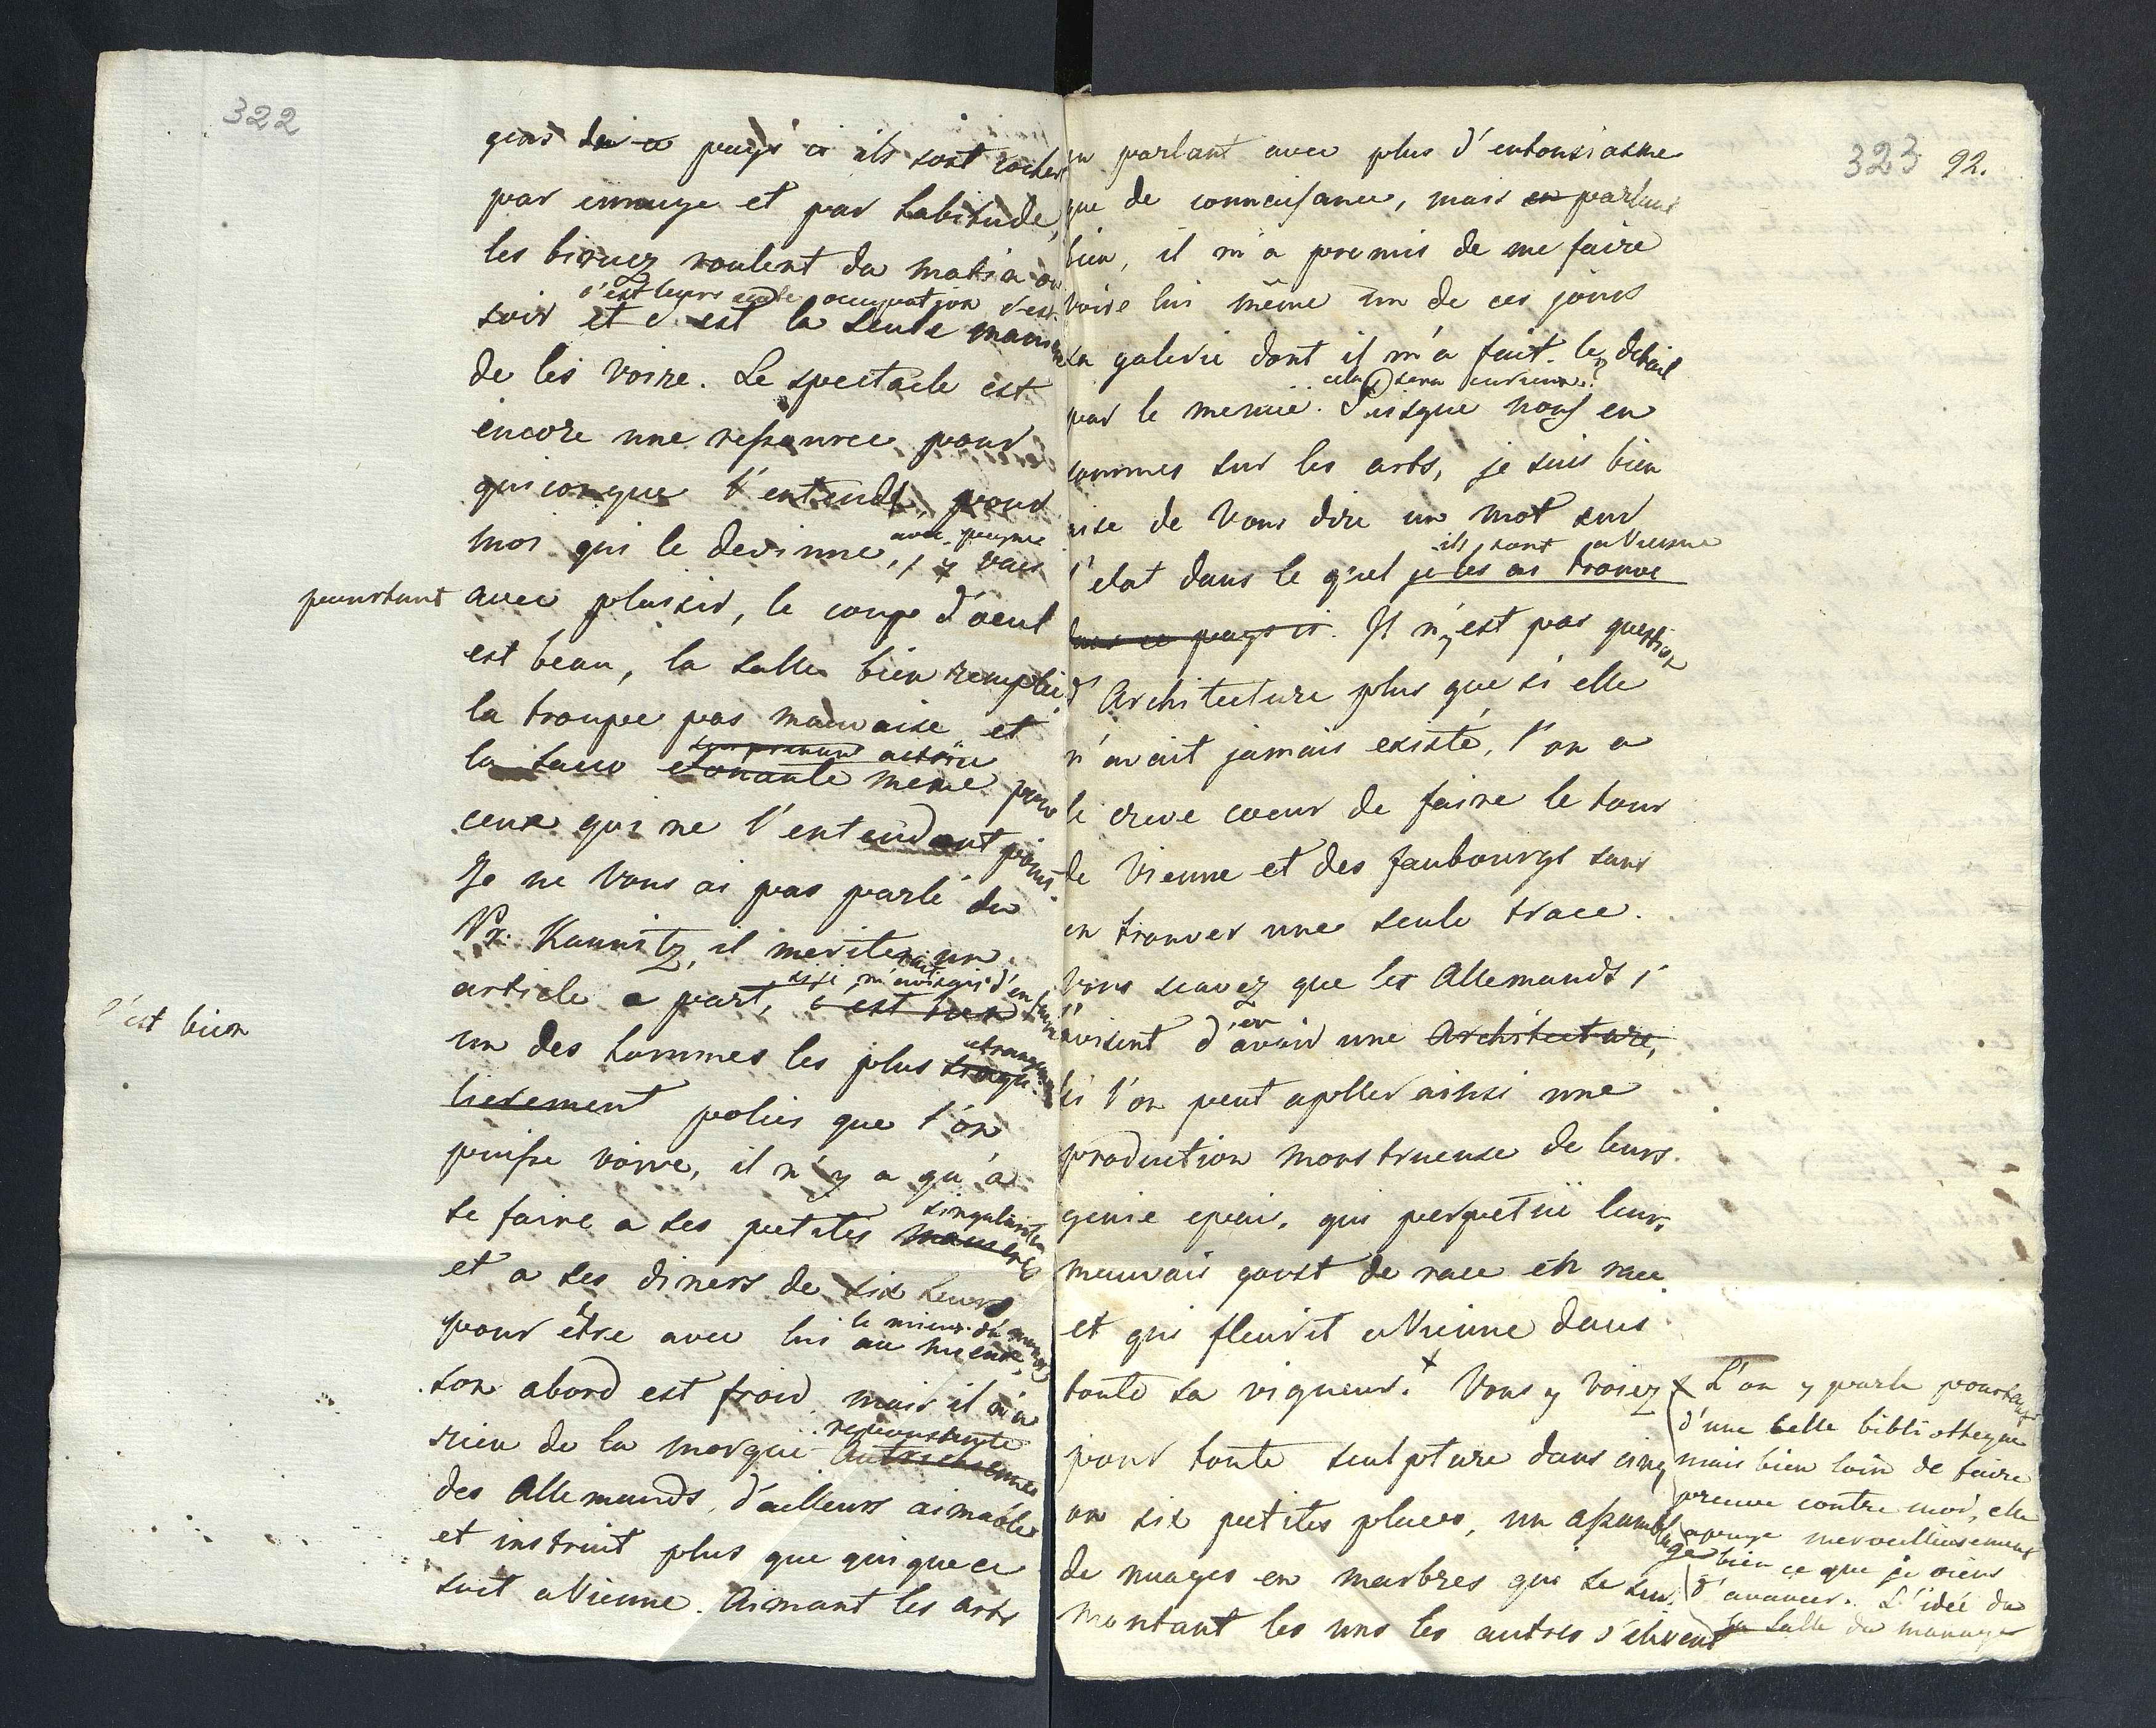 322
gens de ce pays ci ils sont cocher
par ennuye et par habitude,
les birucz roulent du matin au
c'est leurs seule occupation c'est
soir et c'est la seule maniere
de les voire. Le spectacle est
encore une ressource pour
quiconque l'entend, pour
avec peyne
moi qui le devinne, j'y vais
pourtant
avec plaisir, le coup d'oeul
est beau, la salle bien remplie,
la troupe pas mauvaise et
actrice
la Sacco etonante meme pour
ceux qui ne l'entendent point.
Je ne vous ai pas parlé du
Pr. Kaunitz, il meriterait un
si je m'avisois d'en faire
article a part, c'est bien
c'est bien
un des hommes les plus
etrangement
singulierement polies que l'on
puisse voire, il n'y a qu'a
singularitées
se faire a ses petites manieres
et a ses diners de six heures
le mieux du monde
pour être avec lui au mieux,
son abord est froid, mais il n'a
rien de la morgue Autrichienne
des Allemands, d'ailleurs aimable
et instruit plus que qui que ce
soit a Vienne. Aimant les arts
323 92.
en parlant avec plus d'entousiasme
que de connaissance, mais en parlant
bien, il m'a promis de me faire
voire lui même un de ces jours
sa galerie dont il m'a fait le detail
cela sera curieux.
par le menue. Puisque nous en
sommes sur les arts, je suis bien
aise de vous dire un mot sur
ils sont a Vienne
l'etat dans le quel je les ai trouvé
dans ce pays ci. Il n'y est pas question
d'Architecture plus que si elle
n'avait jamais existé, l'on a
le creve coeur de faire le tour
de Vienne et des faubourgs sans
en trouver une seule trace.
Vous scavez que les Allemands s'
en
avisent d'avoir une Architecture,
si l'on peut apeller ainsi une
production monstrueuse de leurs
genie epais, qui perpetüe leur
mauvais goust de race en race
et qui fleurit a Vienne dans
toute sa vigueur. + Vous y voiez
pour toute sculpture dans cinq
ou six petites places, un assemblage
de nuages en marbres qui se sur
montant les uns les autres s'élevent
+ L'on y parle pourtant
d'une belle bibliotheque
mais bien loin de faire
preuve contre moi, elle
apuye merveilleusement
bien ce que je viens
d'avancer. L'idée du
la salle du manege